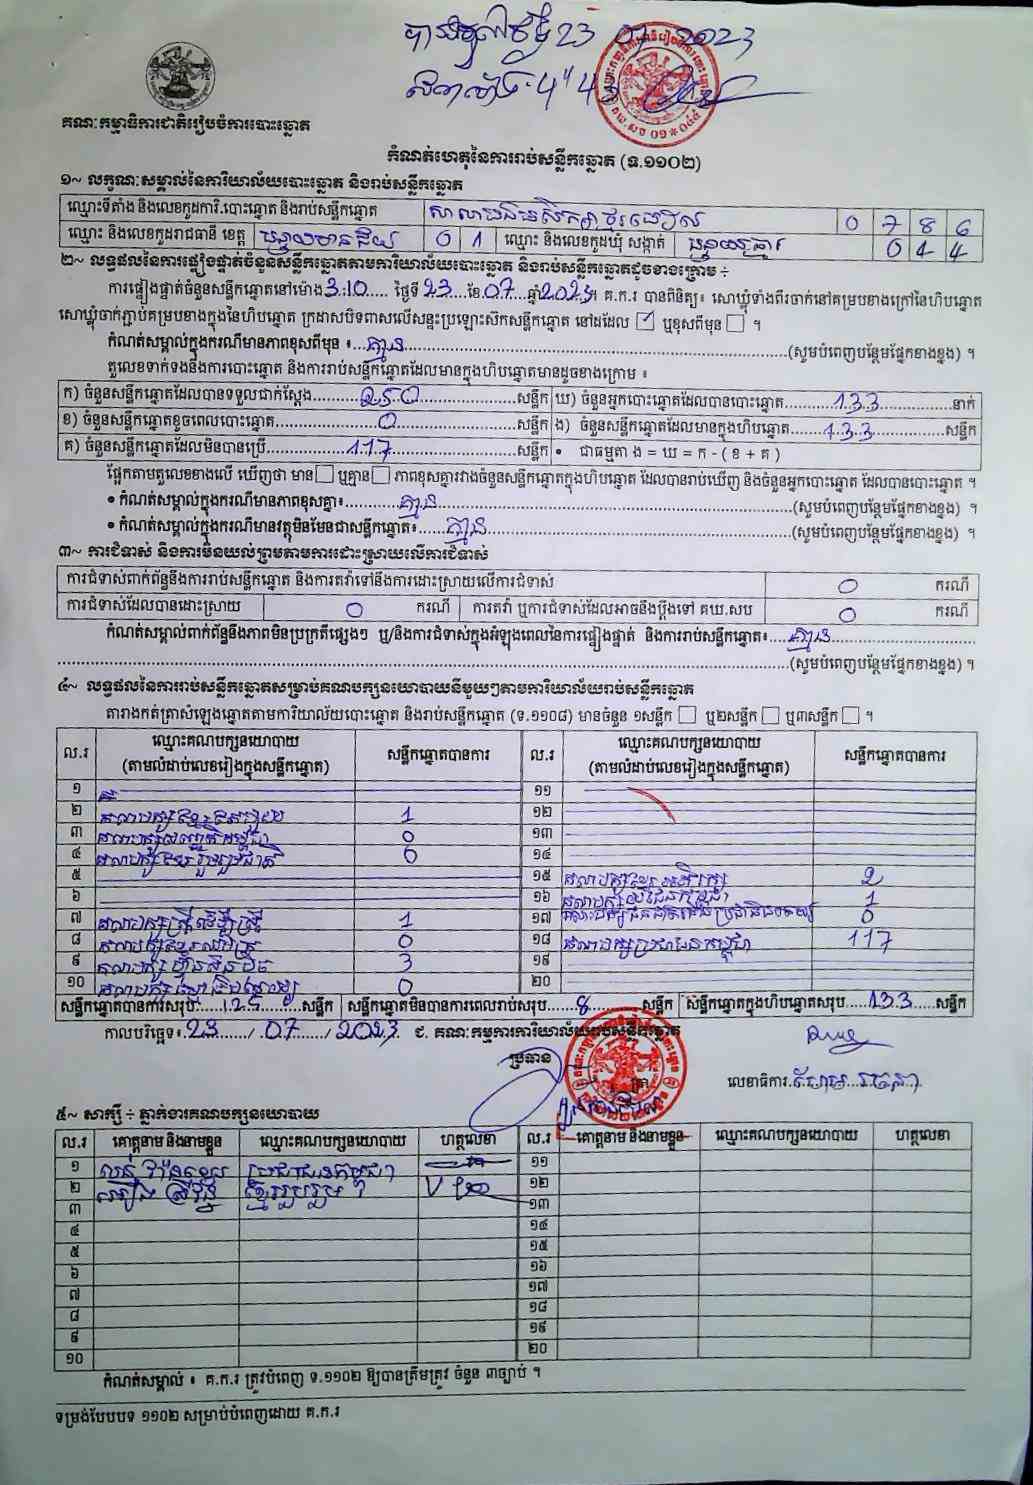 ថ្ងៃទី 23 07 2023
គណៈកម្មាធិការជាតិរៀបចំការបោះឆ្នោត
កំណត់ហេតុនៃការរាប់សន្លឹកឆ្នោត (ទ.១១០២)
១~ លក្ខណៈសម្គាល់នៃការិយាល័យបោះឆ្នោត និងរាប់សន្លឹកឆ្នោត
ឈ្មោះទីតាំង និងលេខកូដការិ.បោះឆ្នោត និងរាប់សន្លឹកឆ្នោត 0 7 8 6
ឈ្មោះ និងលេខកូដរាជធានី ខេត្ត បន្ទាយមានជ័យ 0 1 ឈ្មោះ និងលេខកូដឃុំ សង្កាត់ 0 4 4
២~ លទ្ធផលនៃការផ្ទៀងផ្ទាត់ចំនួនសន្លឹកឆ្នោតតាមការិយាល័យបោះឆ្នោត និងរាប់សន្លឹកឆ្នោតដូចខាងក្រោម ÷
ការផ្ទៀងផ្ទាត់ចំនួនសន្លឹកឆ្នោតនៅម៉ោង 3:10 ថ្ងៃទី 23 ខែ 07 ឆ្នាំ 2023។ គ.ក.រ បានពិនិត្យ៖ សោឃ្លុំទាំងពីរចាក់នៅគម្របខាងក្រៅនៃហិបឆ្នោត
សោឃ្លុំចាក់ភ្ជាប់គម្របខាងក្នុងនៃហិបឆ្នោត ក្រដាសបិទពាសលើសន្ទះប្រឡោះស៊កសន្លឹកឆ្នោត នៅដដែល ☑ ឬខុសពីមុន ☐ ។
កំណត់សម្គាល់ក្នុងករណីមានភាពខុសពីមុន ៖ គ្មាន (សូមបំពេញបន្ថែមផ្នែកខាងខ្នង) ។
តួលេខទាក់ទងនឹងការបោះឆ្នោត និងការរាប់សន្លឹកឆ្នោតដែលមានក្នុងហិបឆ្នោតមានដូចខាងក្រោម ៖
ក) ចំនួនសន្លឹកឆ្នោតដែលបានទទួលជាក់ស្តែង 250 សន្លឹក ឃ) ចំនួនអ្នកបោះឆ្នោតដែលបានបោះឆ្នោត 133 នាក់
ខ) ចំនួនសន្លឹកឆ្នោតខូចពេលបោះឆ្នោត 0 សន្លឹក ង) ចំនួនសន្លឹកឆ្នោតដែលមានក្នុងហិបឆ្នោត 133 សន្លឹក
គ) ចំនួនសន្លឹកឆ្នោតដែលមិនបានប្រើ 117 សន្លឹក • ជាធម្មតា ង = ឃ = ក - ( ខ + គ )
ផ្អែកតាមតួលេខខាងលើ ឃើញថា មាន ☐ ឬគ្មាន ☐ ភាពខុសគ្នារវាងចំនួនសន្លឹកឆ្នោតក្នុងហិបឆ្នោត ដែលបានរាប់ឃើញ និងចំនួនអ្នកបោះឆ្នោត ដែលបានបោះឆ្នោត ។
• កំណត់សម្គាល់ក្នុងករណីមានភាពខុសគ្នា៖ គ្មាន (សូមបំពេញបន្ថែមផ្នែកខាងខ្នង) ។
• កំណត់សម្គាល់ក្នុងករណីមានវត្ថុមិនមែនជាសន្លឹកឆ្នោត៖ គ្មាន (សូមបំពេញបន្ថែមផ្នែកខាងខ្នង) ។
៣~ ការជំទាស់ និងការមិនយល់ព្រមតាមការដោះស្រាយលើការជំទាស់
ការជំទាស់ពាក់ព័ន្ធនឹងការរាប់សន្លឹកឆ្នោត និងការតវ៉ាទៅនឹងការដោះស្រាយលើការជំទាស់ 0 ករណី
ការជំទាស់ដែលបានដោះស្រាយ 0 ករណី ការតវ៉ា ឬការជំទាស់ដែលអាចនឹងប្តឹងទៅ គឃ.សប 0 ករណី
កំណត់សម្គាល់ពាក់ព័ន្ធនឹងភាពមិនប្រក្រតីផ្សេងៗ ឬ/និងការជំទាស់ក្នុងអំឡុងពេលនៃការផ្ទៀងផ្ទាត់ និងការរាប់សន្លឹកឆ្នោត៖ គ្មាន
(សូមបំពេញបន្ថែមផ្នែកខាងខ្នង) ។
៤~ លទ្ធផលនៃការរាប់សន្លឹកឆ្នោតសម្រាប់គណបក្សនយោបាយនីមួយៗតាមការិយាល័យរាប់សន្លឹកឆ្នោត
តារាងកត់ត្រាសំឡេងឆ្នោតតាមការិយាល័យបោះឆ្នោត និងរាប់សន្លឹកឆ្នោត (ទ.១១០៨) មានចំនួន ១សន្លឹក ☐ ឬ២សន្លឹក ☐ ឬ៣សន្លឹក ☐ ។
ល.រ ឈ្មោះគណបក្សនយោបាយ (តាមលំដាប់លេខរៀងក្នុងសន្លឹកឆ្នោត) សន្លឹកឆ្នោតបានការ ល.រ ឈ្មោះគណបក្សនយោបាយ (តាមលំដាប់លេខរៀងក្នុងសន្លឹកឆ្នោត) សន្លឹកឆ្នោតបានការ
១ ១១
២ 1 ១២
៣ 0 ១៣
៤ 0 ១៤
៥ ១៥ 2
៦ ១៦ 1
៧ គណបក្សស្ត្រីដើម្បីស្ត្រី 1 ១៧ 0
៨ 0 ១៨ គណបក្សប្រជាជនកម្ពុជា 117
៩ 3 ១៩
១០ 0 ២០
សន្លឹកឆ្នោតបានការសរុប 125 សន្លឹក សន្លឹកឆ្នោតមិនបានការពេលរាប់សរុប 8 សន្លឹក សន្លឹកឆ្នោតក្នុងហិបឆ្នោតសរុប 133 សន្លឹក
កាលបរិច្ឆេទ៖ 23 / 07 / 2023 ជ. គណៈកម្មការការិយាល័យរាប់សន្លឹកឆ្នោត
ប្រធាន
លេខាធិការ
៥~ សាក្សី ÷ ភ្នាក់ងារគណបក្សនយោបាយ
ល.រ គោត្តនាម និងនាមខ្លួន ឈ្មោះគណបក្សនយោបាយ ហត្ថលេខា ល.រ គោត្តនាម និងនាមខ្លួន ឈ្មោះគណបក្សនយោបាយ ហត្ថលេខា
១ ប្រជាជនកម្ពុជា ១១
២ ១២
៣ ១៣
៤ ១៤
៥ ១៥
៦ ១៦
៧ ១៧
៨ ១៨
៩ ១៩
១០ ២០
កំណត់សម្គាល់ ៖ គ.ក.រ ត្រូវបំពេញ ទ.១១០២ ឱ្យបានត្រឹមត្រូវ ចំនួន ៣ច្បាប់ ។
ទម្រង់បែបបទ ១១០២ សម្រាប់បំពេញដោយ គ.ក.រ